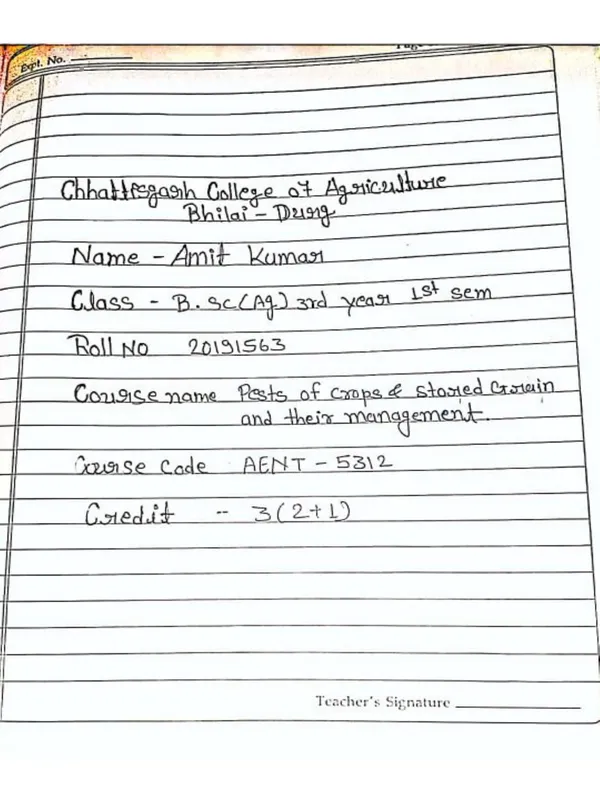 Expt. No.
Page
Chhattisgarh College of Agriculture
Bhilai - Durg
Name - Amit Kumar
Class - B.Sc(Ag) 3rd year 1st sem
Roll No 20191563
Course name Pests of crops & stored Grain
and their management.
Course Code AENT - 5312
Credit -- 3(2+1)
Teacher's Signature